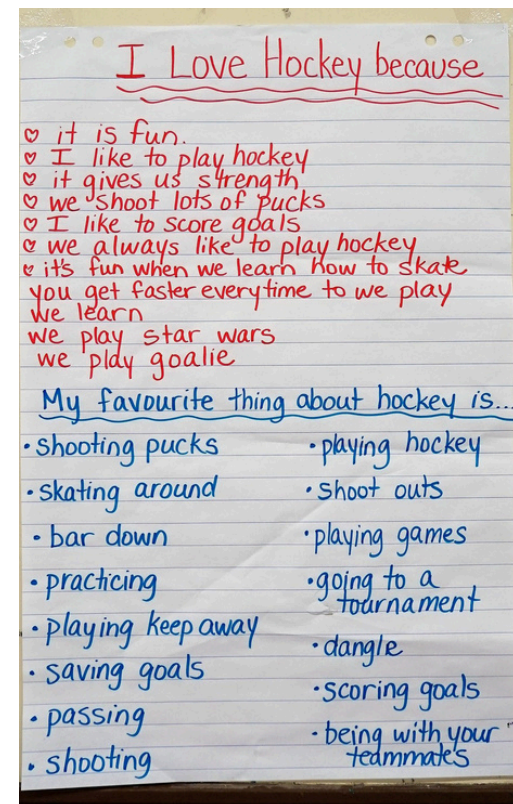 I Love Hockey because
♡ it is fun.
♡ I like to play hockey
♡ it gives us strength
♡ we shoot lots of pucks
♡ I like to score goals
♡ we always like to play hockey
♡ it's fun when we learn how to skate
you get faster everytime to we play
we learn
we play star wars
we play goalie
My favourite thing about hockey is...
• shooting pucks
• skating around
• bar down
• practicing
• playing keep away
• saving goals
• passing
• shooting
• playing hockey
• shoot outs
• playing games
• going to a
tournament
• dangle
• scoring goals
• being with your
teammate's